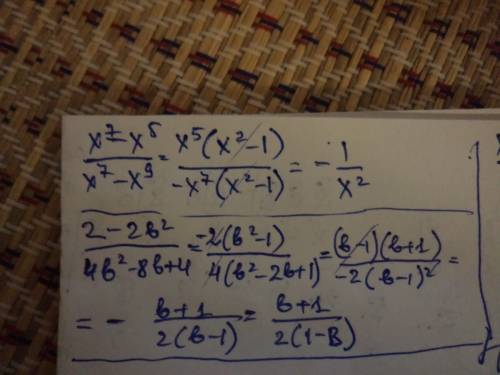 (x⁷-x⁵)/(x⁷-x⁹) = x⁵(x²-1)/(-x⁷(x²-1)) = -1/x²
(2-2b²)/(4b²-8b+4) = -2(b²-1)/(4(b²-2b+1)) = (b-1)(b+1)/(-2(b-1)²) =
= - (b+1)/(2(b-1)) = (b+1)/(2(1-B))